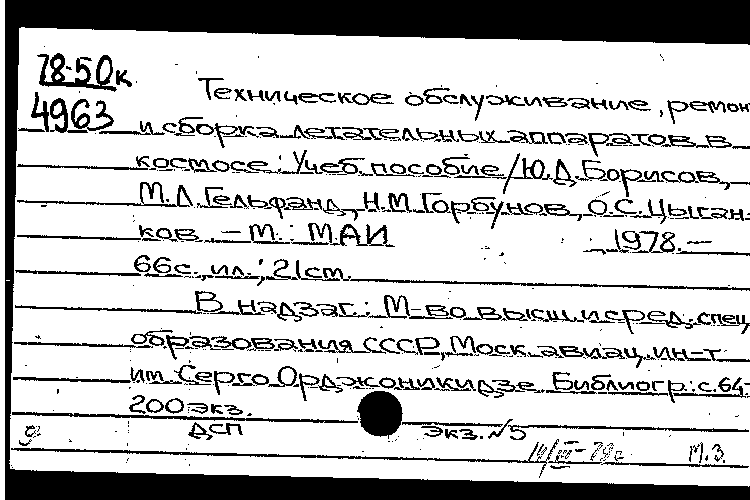 78-50к
4963
Техническое обслуживание, ремонт
и сборка летательных аппаратов в
космосе: Учеб. пособие /Ю.Д. Борисов,
М.Л. Гельфанд, Н.М. Горбунов, О.С. Цыган-
ков. — М.: МАИ, 1978. —
66с., ил.; 21см.
В надзаг.: М-во высш. и сред. спец.
образования СССР, Моск. авиац. ин-т
им. Серго Орджоникидзе. Библиогр.: с. 64-
200 экз.
ДСП экз. №5
М.З.